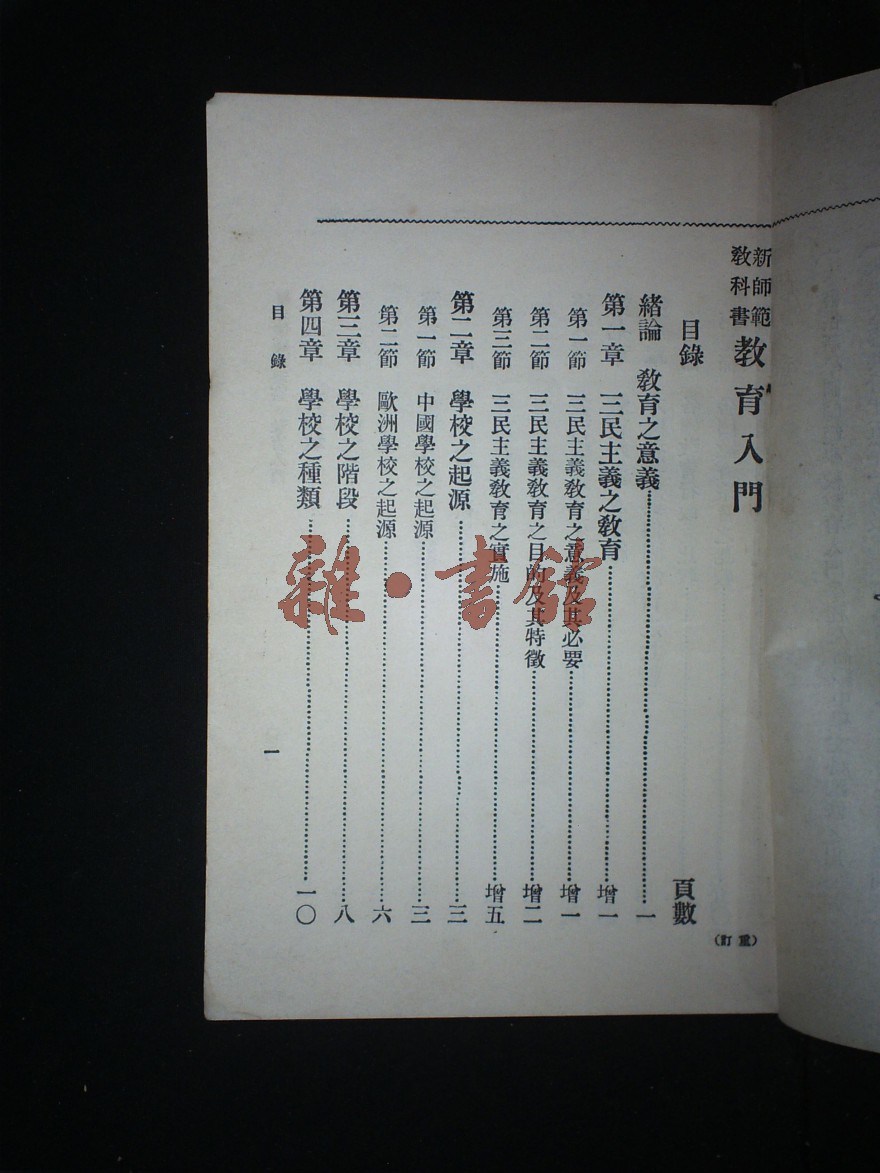 新師範
教科書
教育入門
(重訂)
目錄 頁數
緒論 教育之意義 一
第一章 三民主義之教育 增一
第一節 三民主義教育之意義及其必要 增一
第二節 三民主義教育之目的及其特徵 增二
第三節 三民主義教育之實施 增五
第二章 學校之起源 三
第一節 中國學校之起源 三
第二節 歐洲學校之起源 六
第三章 學校之階段 八
第四章 學校之種類 一〇
目錄 一
雜·書館